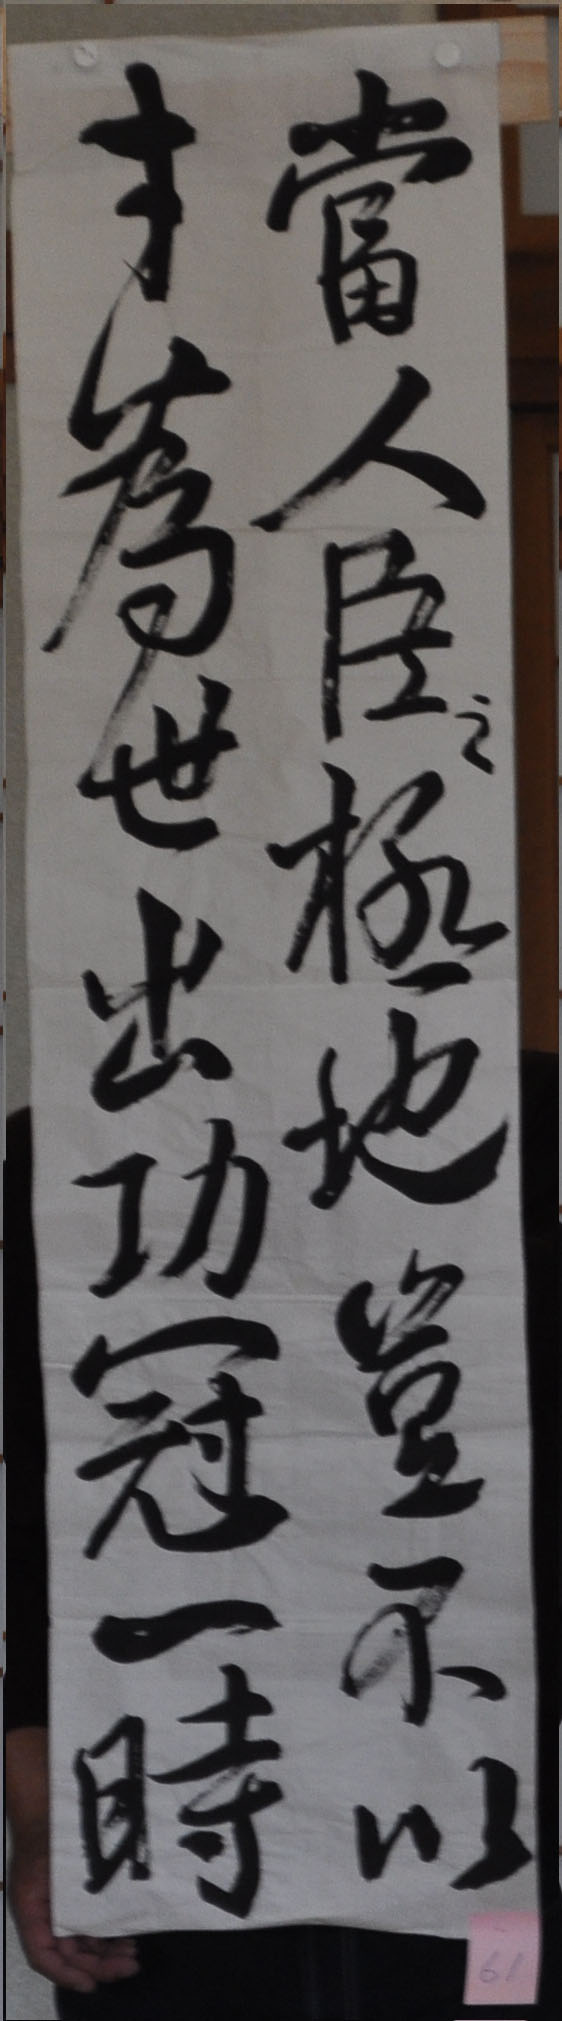 當人臣之極地豈不以
才為世出功冠一時
61